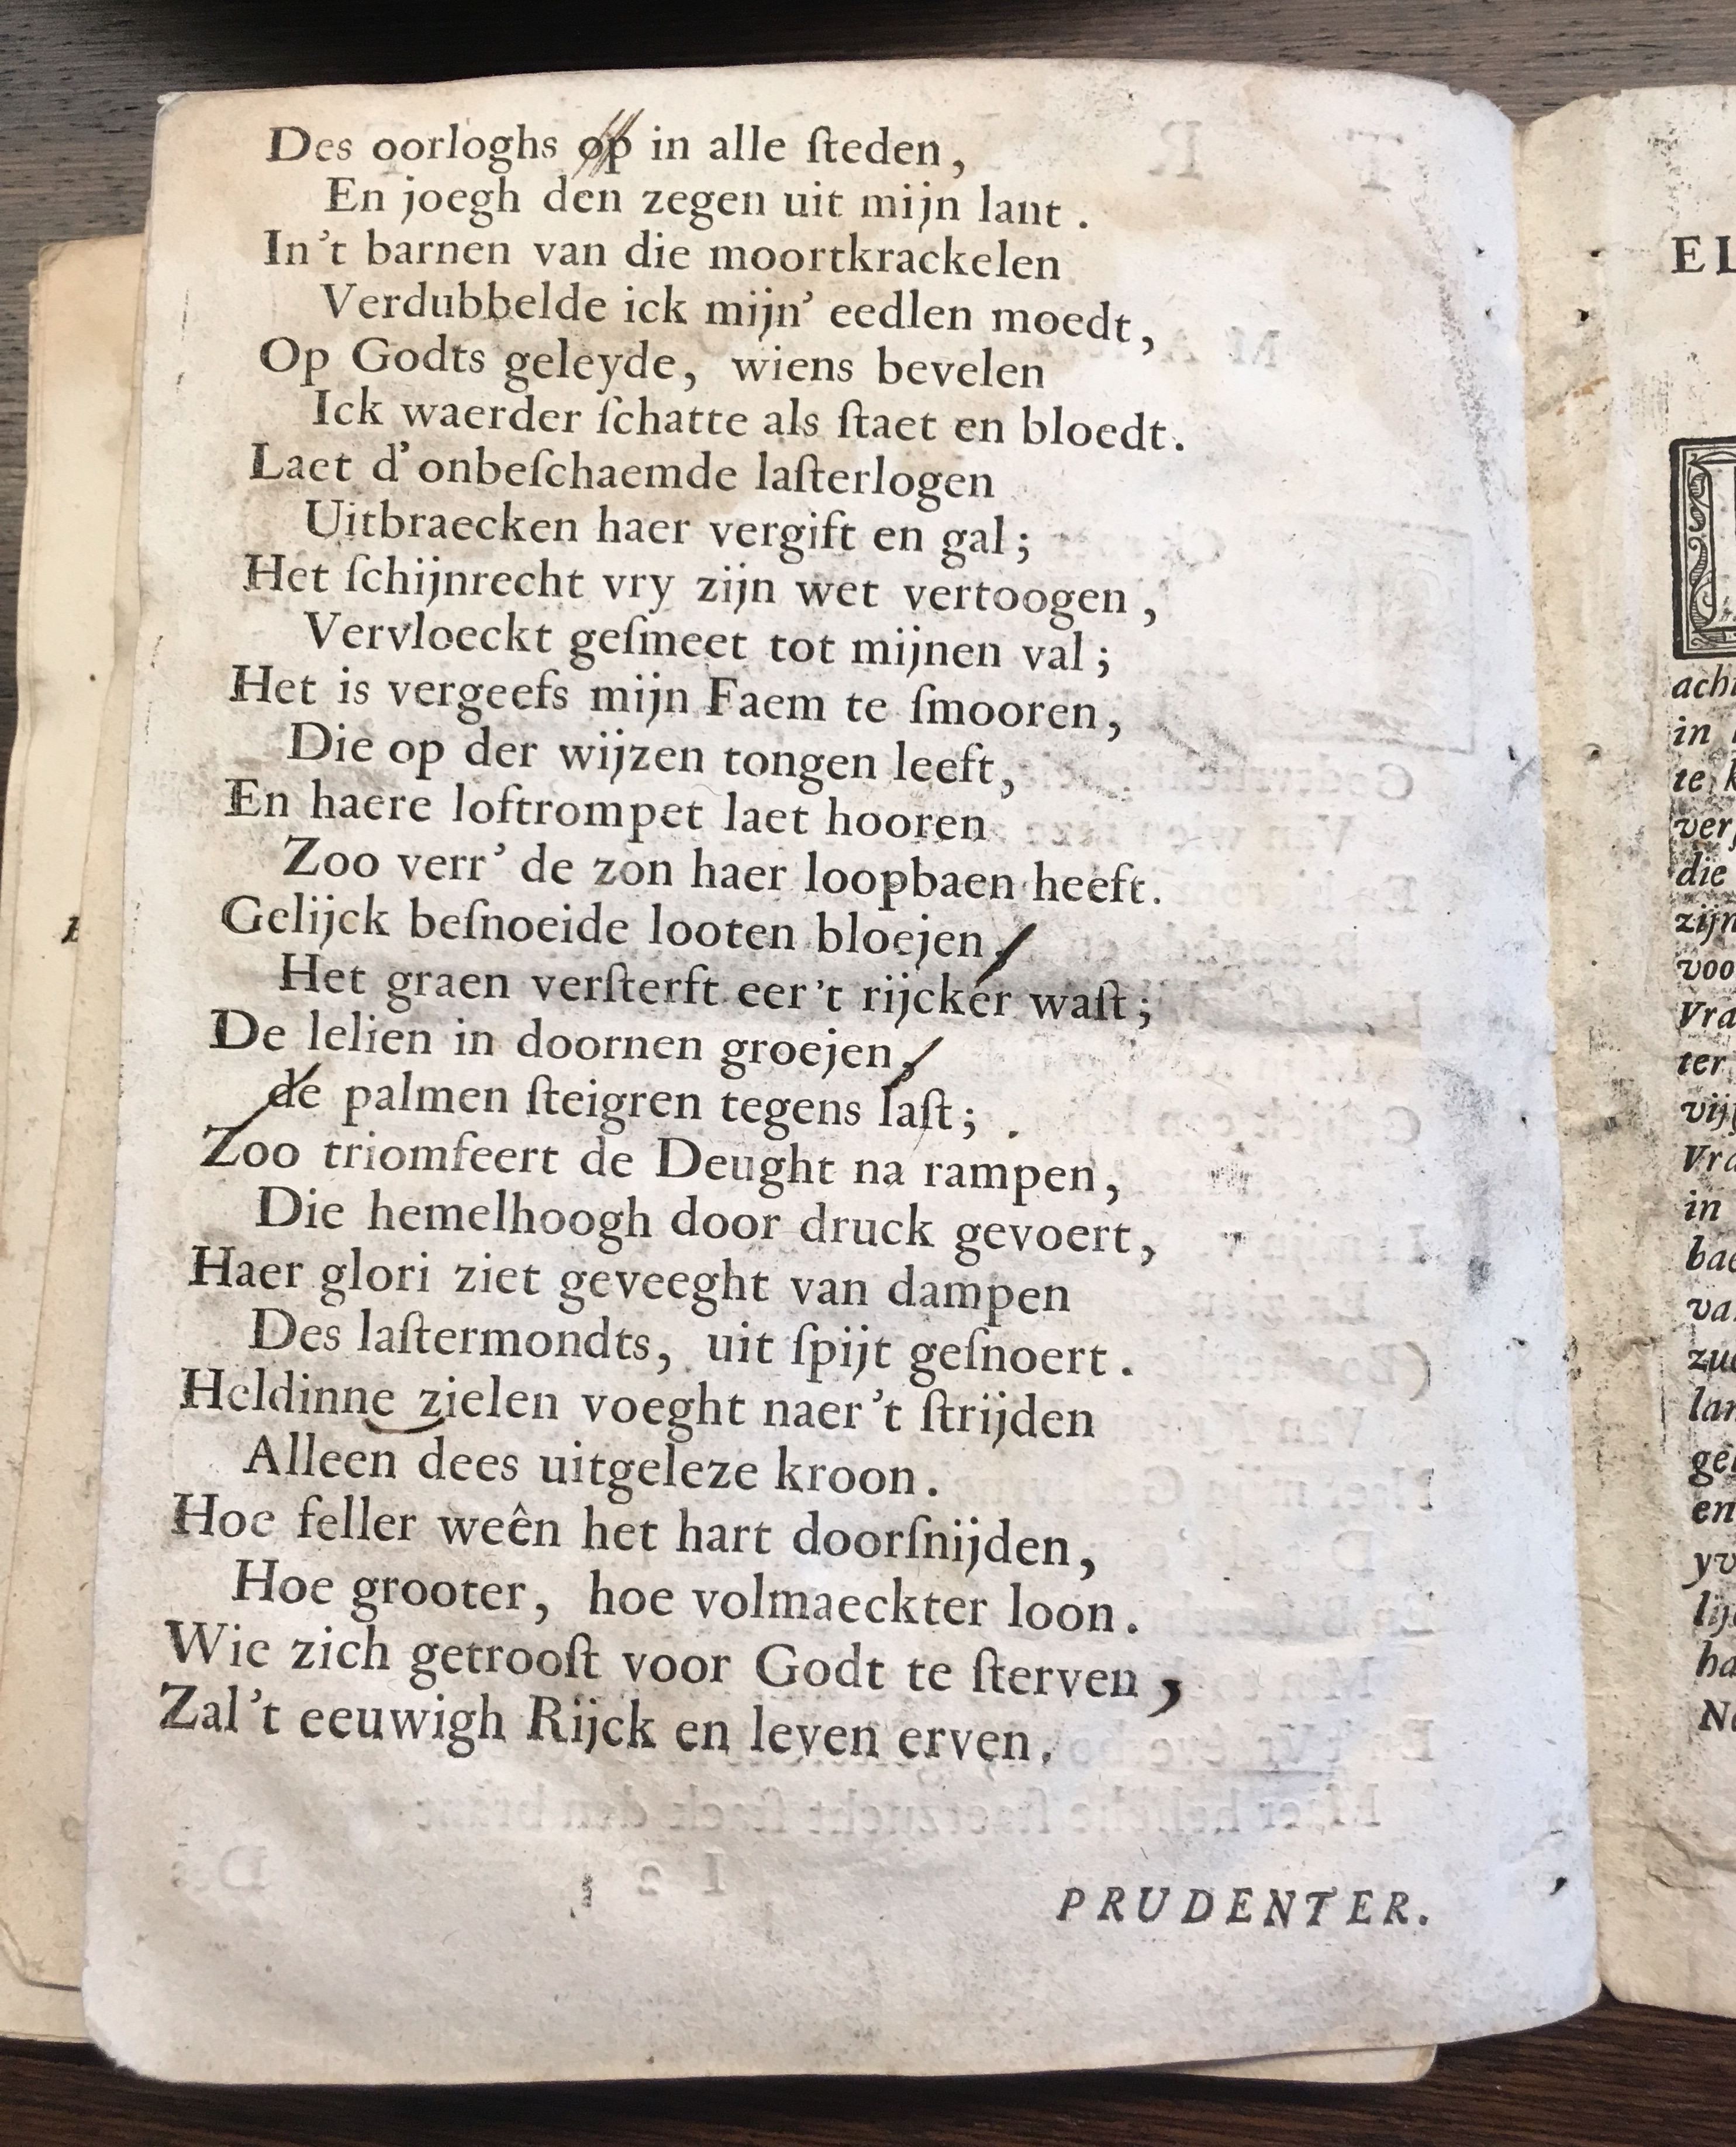 Des oorloghs op in alle ſteden,
En joegh den zegen uit mijn lant.
In 't barnen van die moortkrackelen
Verdubbelde ick mijn' eedlen moedt,
Op Godts geleyde, wiens bevelen
Ick waerder ſchatte als ſtaet en bloedt.
Laet d' onbeſchaemde laſterlogen
Uitbraecken haer vergift en gal;
Het ſchijnrecht vry zijn wet vertoogen,
Vervloeckt geſmeet tot mijnen val;
Het is vergeefs mijn Faem te ſmooren,
Die op der wijzen tongen leeft,
En haere loftrompet laet hooren
Zoo verr' de zon haer loopbaen heeft.
Gelijck beſnoeide looten bloejen,
Het graen verſterft eer 't rijcker waſt;
De lelien in doornen groejen,
de palmen ſteigren tegens laſt;
Zoo triomfeert de Deught na rampen,
Die hemelhoogh door druck gevoert,
Haer glori ziet geveeght van dampen
Des laſtermondts, uit ſpijt geſnoert.
Heldinne zielen voeght naer 't ſtrijden
Alleen dees uitgeleze kroon.
Hoe feller weên het hart doorſnijden,
Hoe grooter, hoe volmaeckter loon.
Wie zich getrooſt voor Godt te ſterven,
Zal 't eeuwigh Rijck en leven erven.
PRUDENTER.
EL
in
te
die
zijn
voo
Vra
ter
Vra
in
bae
en